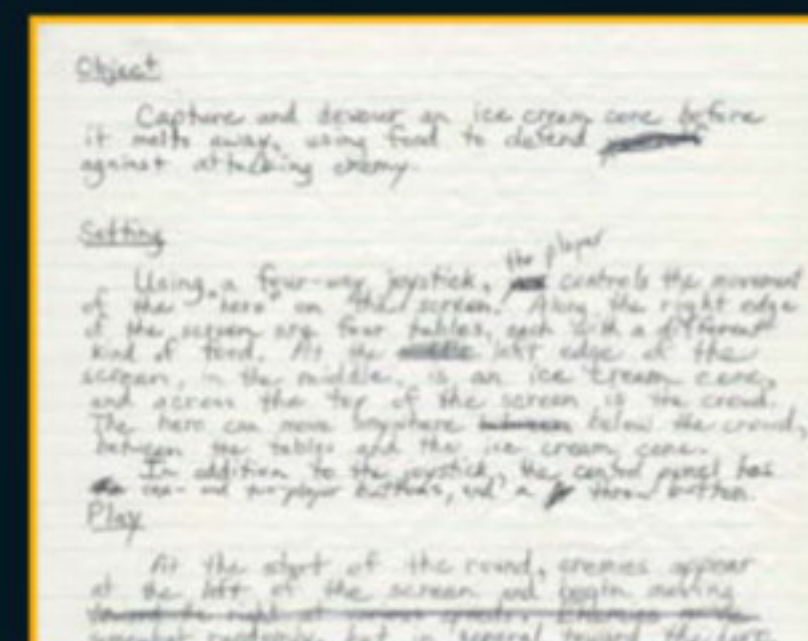 Object
Capture and devour an ice cream cone before
it melts away, using food to defend
against attacking enemy.
Setting
the player
Using a four-way joystick, controls the movement
of the "hero" on the screen. Along the right edge
of the screen are four tables, each with a different
kind of food. At the left edge of the
screen, in the middle, is an ice cream cone,
and across the top of the screen is the crowd.
The hero can move anywhere between below the crowd,
between the tables and the ice cream cone.
In addition to the joystick, the control panel has
one- and two-player buttons, and a throw button.
Play
At the start of the round, enemies appear
at the left of the screen and begin moving
somewhat randomly, but in general toward the hero